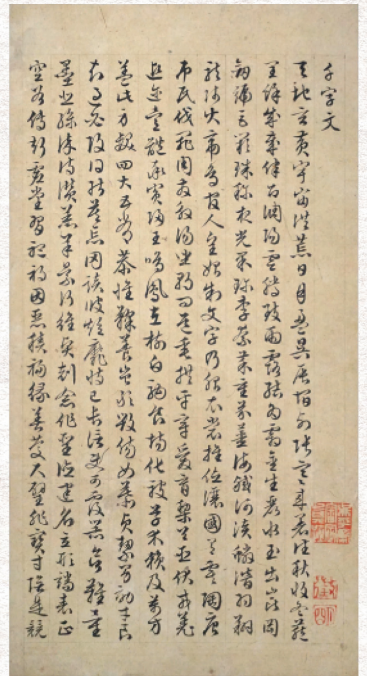 千字文
天地玄黃宇宙洪荒日月盈昃辰宿列張寒來暑往秋收冬藏
閏餘成歲律呂調陽雲騰致雨露結為霜金生麗水玉出崑岡
劍號巨闕珠稱夜光果珍李柰菜重芥薑海鹹河淡鱗潛羽翔
龍師火帝鳥官人皇始制文字乃服衣裳推位讓國有虞陶唐
弔民伐罪周發殷湯坐朝問道垂拱平章愛育黎首臣伏戎羌
遐邇壹體率賓歸王鳴鳳在樹白駒食場化被草木賴及萬方
蓋此身髮四大五常恭惟鞠養豈敢毀傷女慕貞潔男效才良
知過必改得能莫忘罔談彼短靡恃己長信使可覆器欲難量
墨悲絲染詩讚羔羊景行維賢剋念作聖德建名立形端表正
空谷傳聲虛堂習聽禍因惡積福緣善慶尺璧非寶寸陰是競